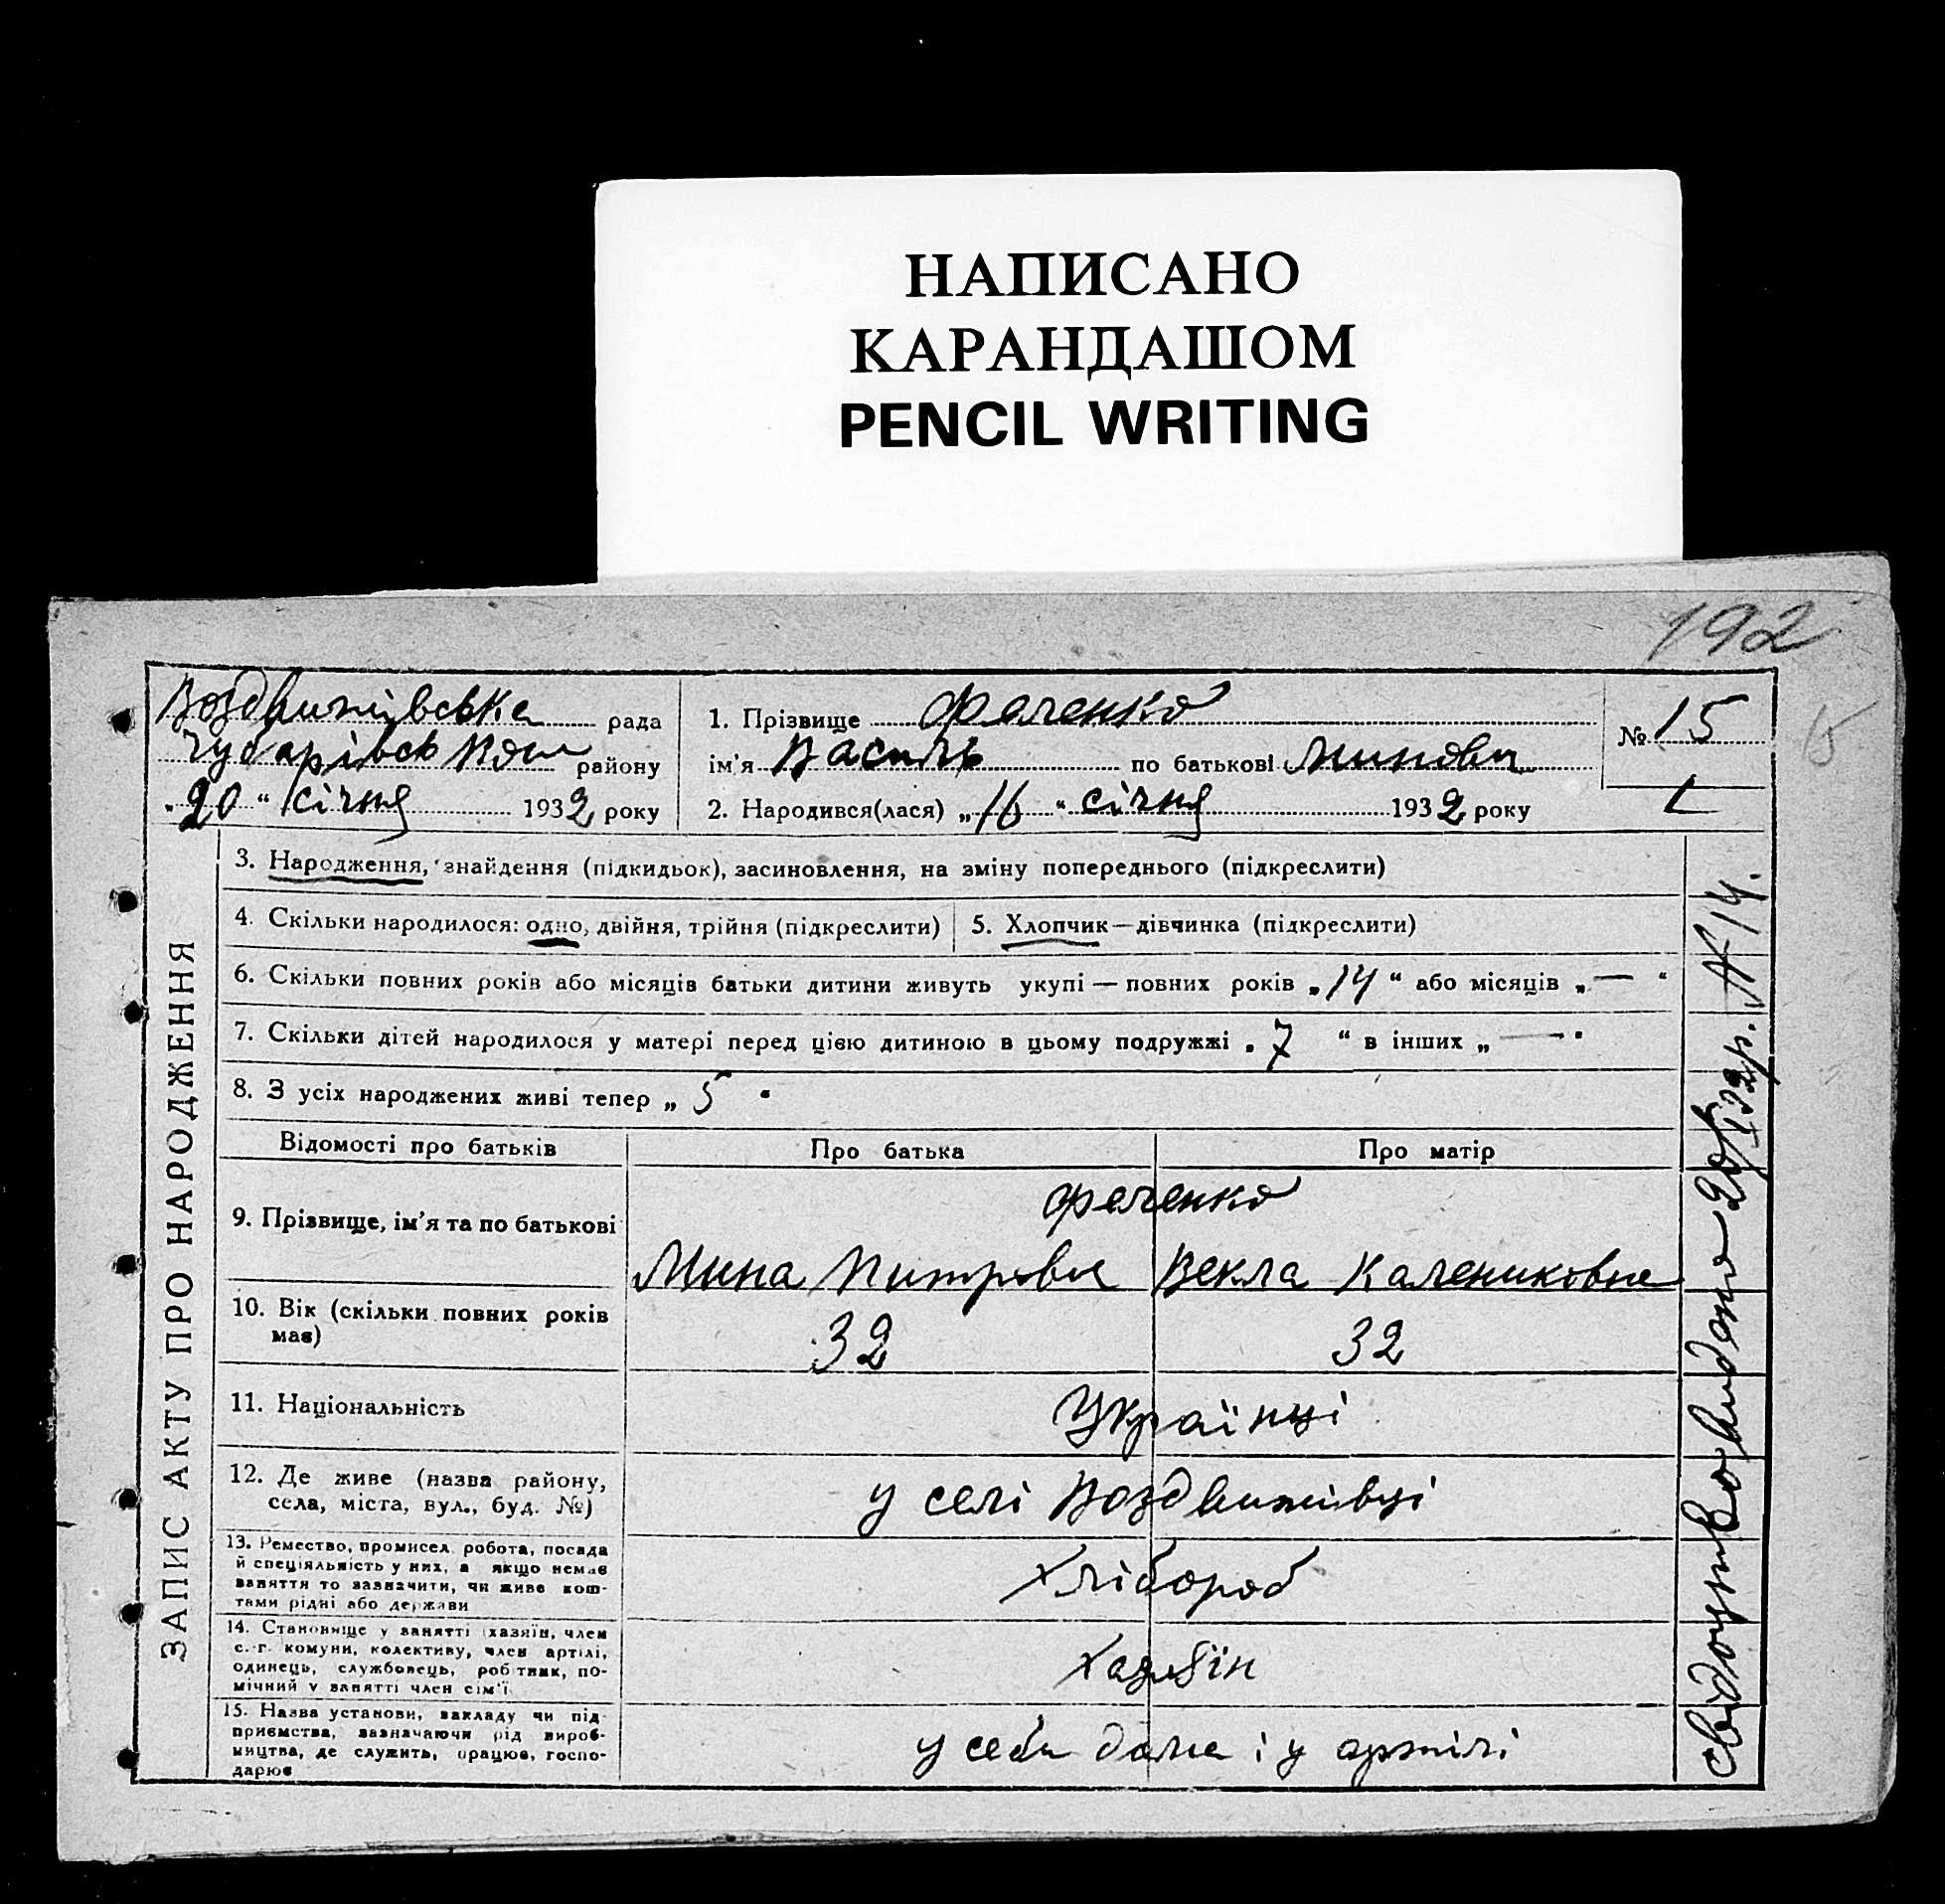 НАПИСАНО
КАРАНДАШОМ
PENCIL WRITING
192
Воздвижівська рада
Чубарівського району
„20“ січня 1932 року
1. Прізвище Фаленко
ім'я Василь по батькові Минович
2. Народився(лася) „16“ січня 1932 року
№ 15
1
15
ЗАПИС АКТУ ПРО НАРОДЖЕННЯ
3. Народження, знайдення (підкидьок), засиновлення, на зміну попереднього (підкреслити)
4. Скільки народилося: одно, двійня, трійня (підкреслити)
5. Хлопчик—дівчинка (підкреслити)
6. Скільки повних років або місяців батьки дитини живуть укупі — повних років „14“ або місяців „—“
7. Скільки дітей народилося у матері перед цією дитиною в цьому подружжі „7“ в інших „—“
8. З усіх народжених живі тепер „5“
Відомості про батьків
Про батька
Про матір
9. Прізвище, ім'я та по батькові
Фаленко
Мина Питрович
Векла Калениковна
10. Вік (скільки повних років
має)
32
32
11. Національність
Українці
12. Де живе (назва району,
села, міста, вул., буд. №)
у селі Воздвижівці
13. Ремество, промисел, робота, посада
й спеціяльність у них, а якщо немає
заняття то зазначити, чи живе кош-
тами рідні або держави
Хлібороб
14. Становище у занятті (хазяїн, член
с.-г. комуни, колективу, член артілі,
одинець, службовець, робітник, по-
мічний у занятті член сім'ї)
Хазяїн
15. Назва установи, закладу чи під-
приємства, зазначаючи рід вироб-
ництва, де служить, працює, госпо-
дарює
у себи дома і у артілі
свидоцтво видано 20/I 32 р. № 14.